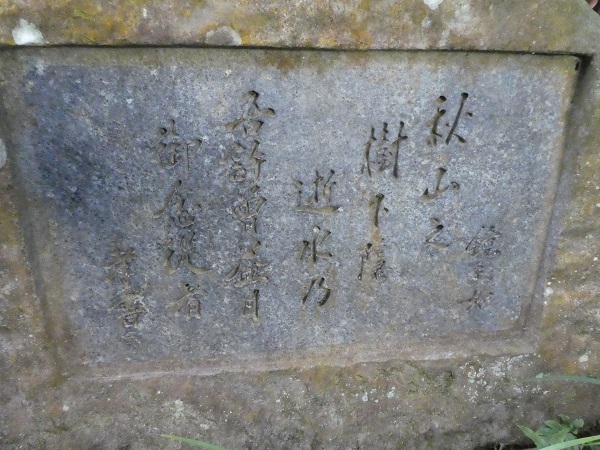 鏡王女
秋山之
樹下隠
逝水乃
吾許曾益目
御念従者
孝書